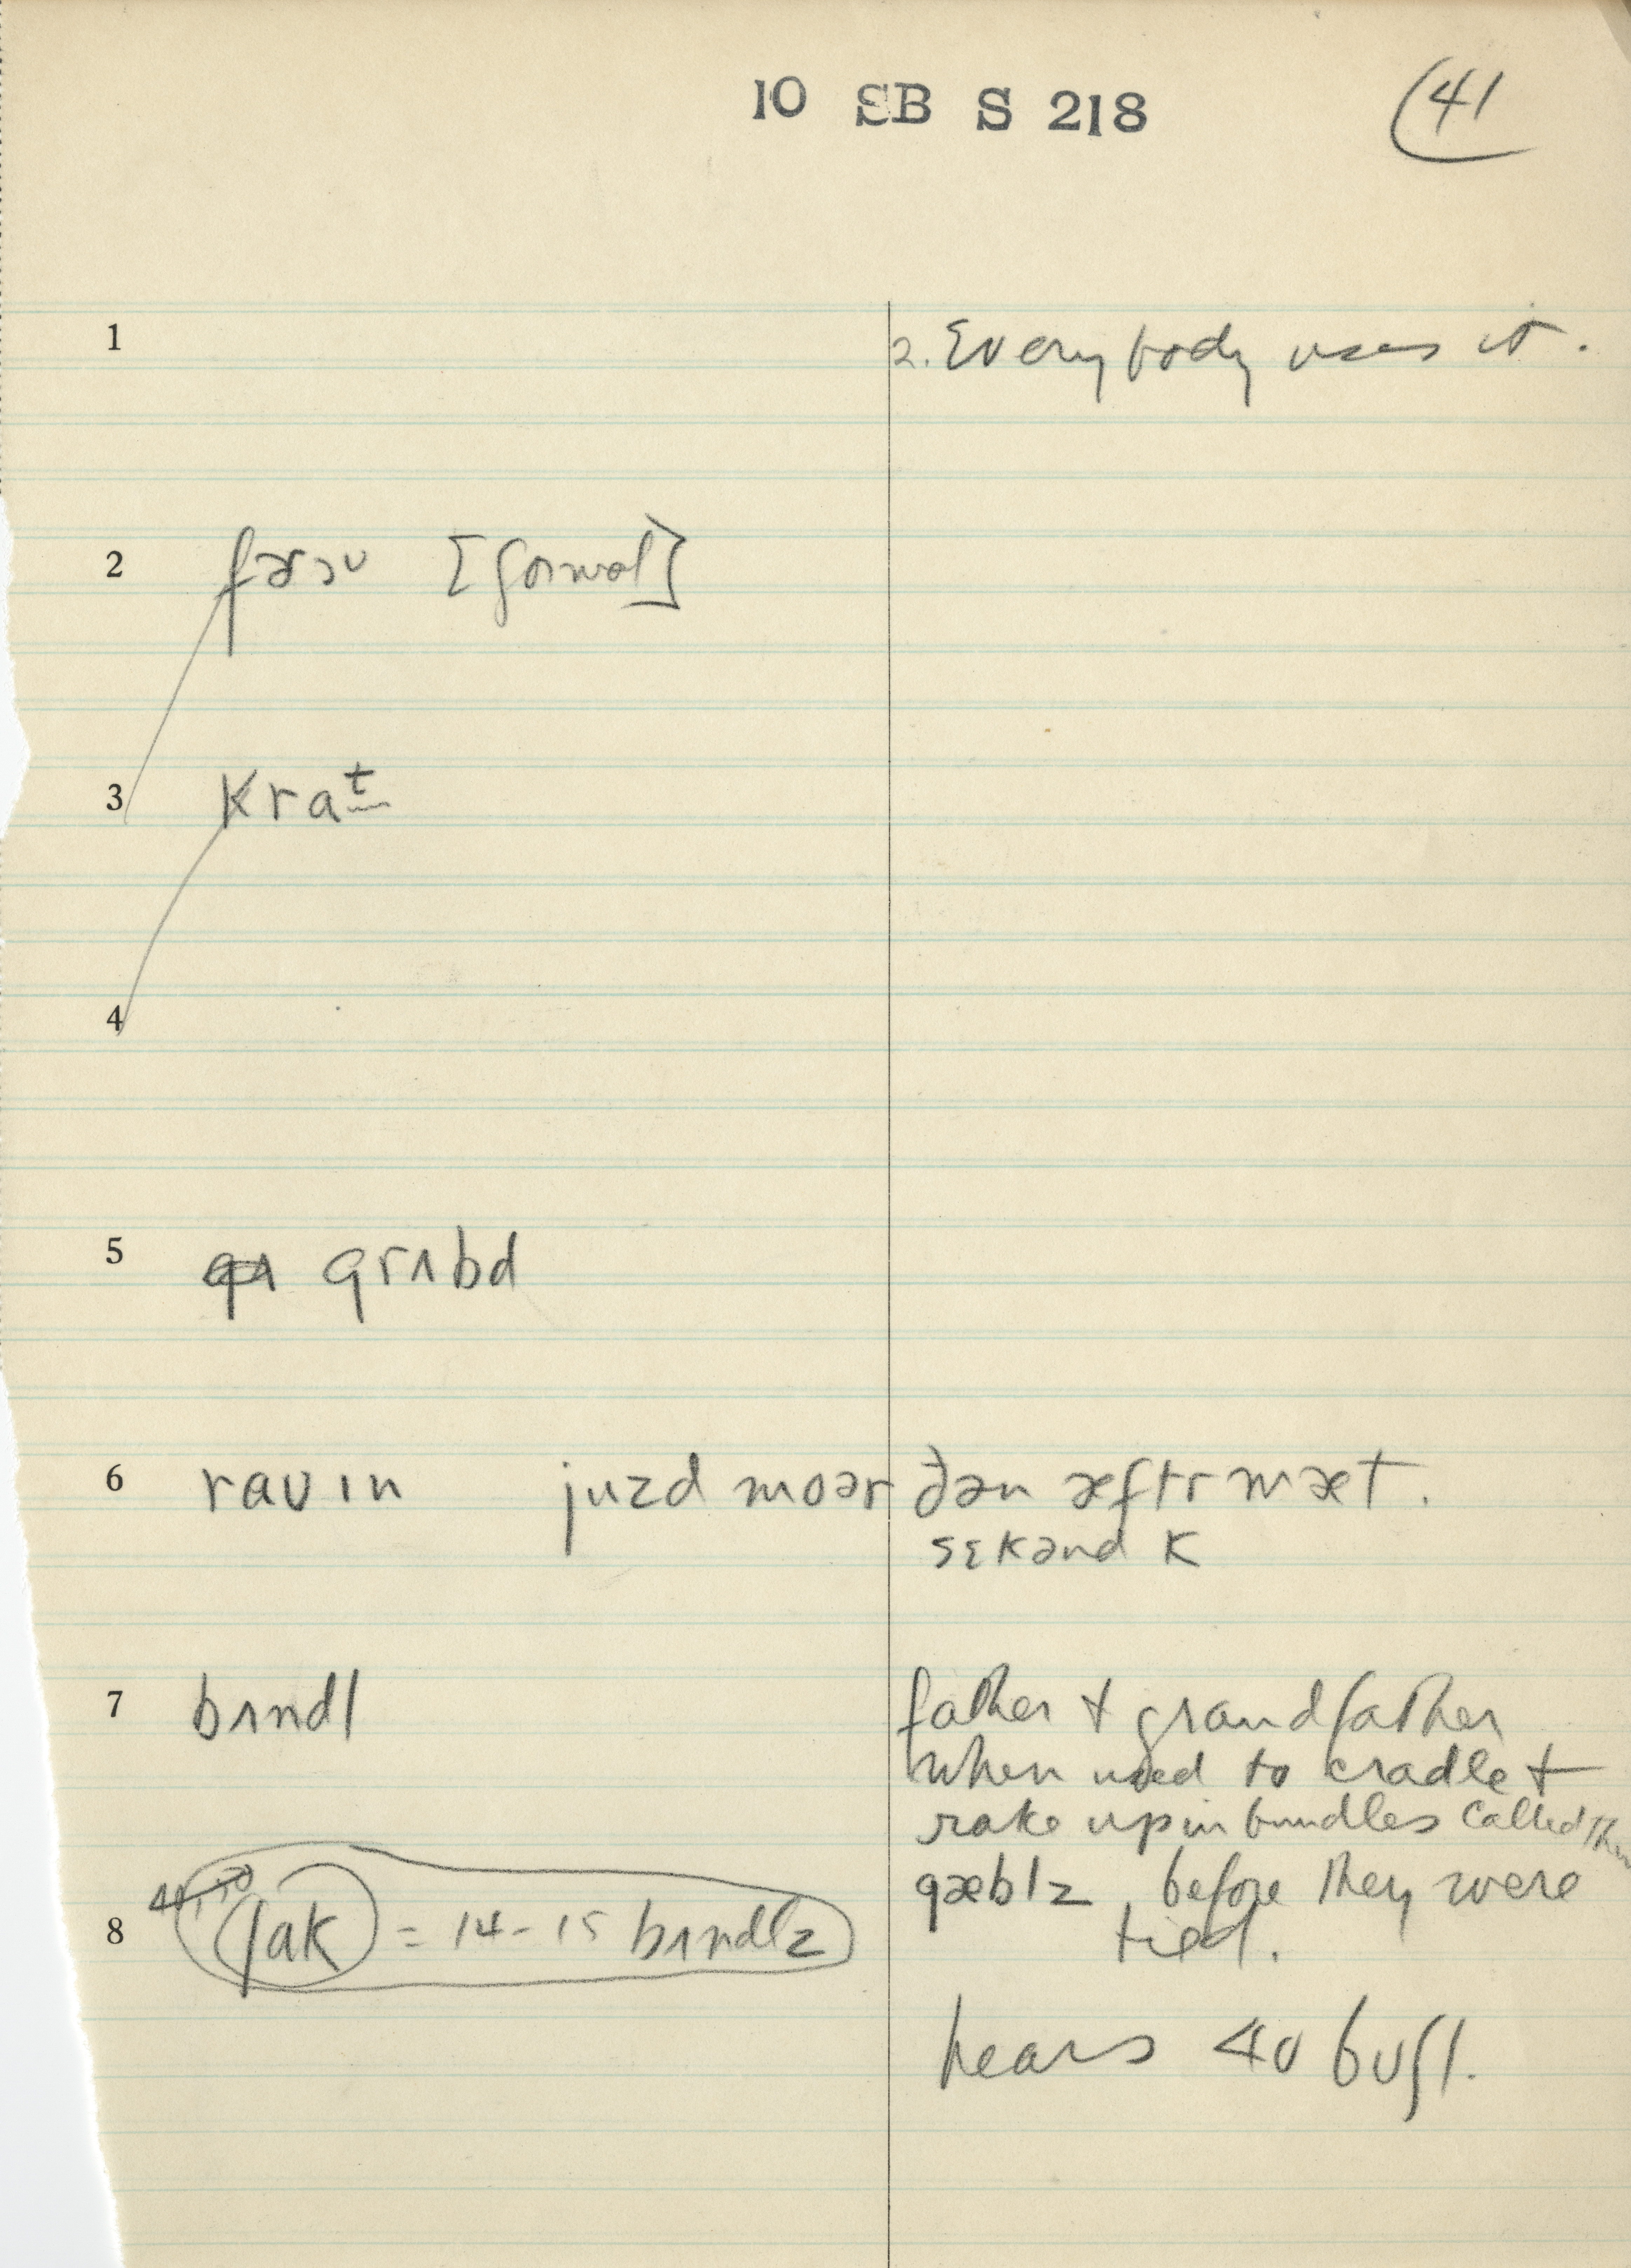 10 SB S 218 41
1 2. Everybody uses it.
2 fɚɔʊ
3 Krat
4
5 grʌbd
6 raʊɪn juzd moər ðən æftr mæt.
sɛkənd K
7 bʌndl father + grandfather
when used to cradle +
rake up in bundles called them
gæblz before they were
8 ʃak = 14-15 bʌndlz tied.
hears 40 buʃl.